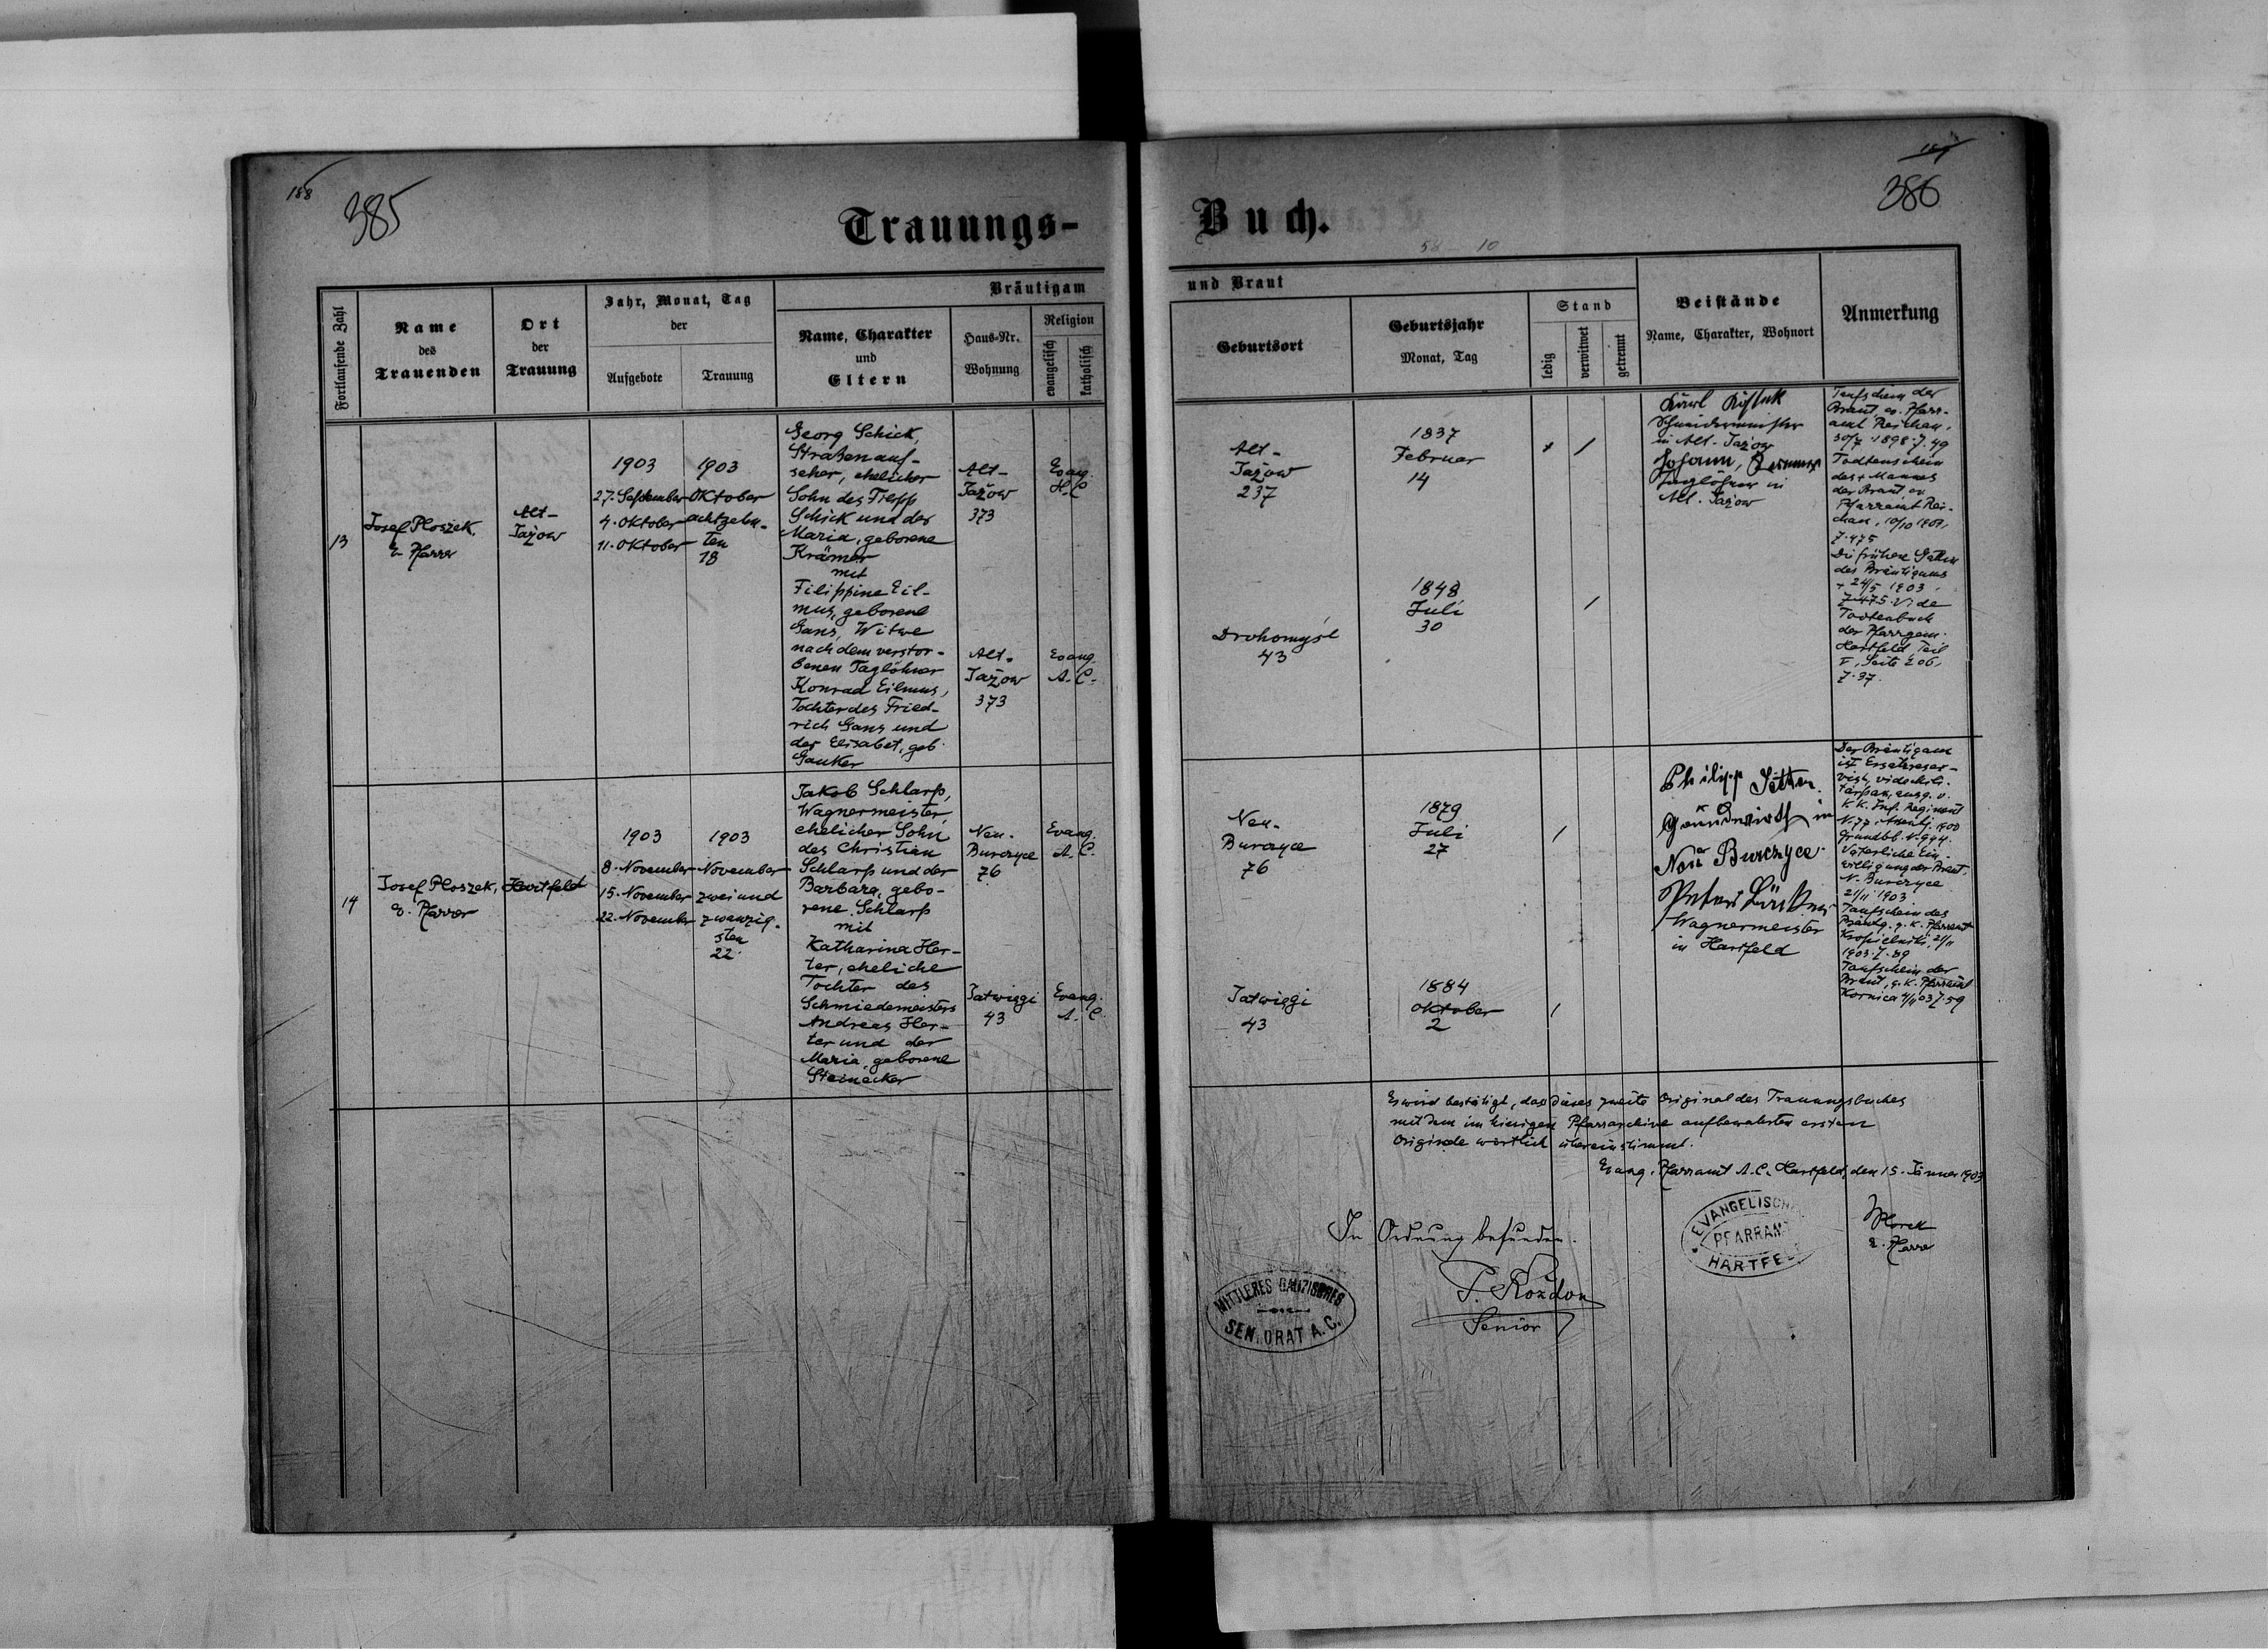 188
385
Trauungs-
Fortlaufende Zahl
Name
des
Trauenden
Ort
der
Trauung
Jahr, Monat, Tag
der
Aufgebote
Trauung
Bräutigam
Name, Charakter
und
Eltern
Haus-Nr.
Wohnung
Religion
evangelisch
katholisch
13
Josef Ploszek,
e. Pfarrer
Alt-
Jażow
1903
27. September
4. Oktober
11. Oktober
1903
Oktober
achtzehn-
ten
18
Georg Schick,
Straßenauf-
seher, ehelicher
Sohn des Filipp
Schick und der
Maria, geborene
Krämer
mit
Filippine Eil-
mus, geborene
Gans, Witwe
nach dem verstor-
benen Taglöhner
Konrad Eilmus,
Tochter des Fried-
rich Gans und
der Elisabet, geb.
Ganker
Alt-
Jażow
373
Evang.
H.C
Alt-
Jażow
373
Evang.
A.C.
14
Josef Ploszek,
e. Pfarrer
Hartfeld
1903
8. November
15. November
22. November
1903
November
zwei und
zwanzig-
sten
22.
Jakob Schlarp,
Wagnermeister,
ehelicher Sohn
des Christian
Schlarp und der
Barbara, gebo-
rene Schlarp
mit
Katharina Her-
ter, eheliche
Tochter des
Schmiedemeisters
Andreas Her-
ter und der
Maria, geborene
Steinecker
Neu-
Burczyce
76
Evang.
A.C.
Jatwiggi
43
Evang.
A.C
386
Buch.
58 10
und Braut
Geburtsort
Geburtsjahr
Monat, Tag
Stand
ledig
verwitwet
getrennt
Beistände
Name, Charakter, Wohnort
Anmerkung
Alt-
Jażow
237
1837
Februar
14
Drohomyśl
43
1848
Juli
30
Karl
Schneidermeister
in Alt-Jażow
Johann,
Taglöhner in
Alt. Jażow
Taufschein der
Braut, ev. Pfarr-
amt Reichau,
30/7 1898 Z. 49
Todtenschein
des + Mannes
der Braut ev
Pfarramt Rei-
chau, 10/10 1903,
Z. 475
Die frühere Gattin
des Bräutigams
+ 24/5 1903,
Z 475. Vide
Todtenbuch
der Pfarrgem.
Hartfeld, Teil
I, Seite 206,
Z. 37.
Neu-
Burczyce
76
1879
Juli
27
Jatwiggi
43
1884
Oktober
2
Philipp
Grundwirth in
Neu Burczyce
Peter
Wagnermeister
in Hartfeld
Der Bräutigam
ist Ersatzreser-
vist,
K. K. Inf. Regiment
N. 77. Assentj. 1900
Grundbl. N. 944.
Väterliche Ein-
willigung der Braut.
N. Burczyce
21/11 1903
Taufschein des
Bräutig. g. K. Pfarramt
1903. Z. 89
Taufschein der
Braut, g. K. Pfarramt
Kornica 4/11 03 Z. 59
Es wird bestätigt, das dieses zweite Original des Trauungsbuches
mit dem im hiesigen Pfarrarchive aufbewahrten ersten
Originale wörtlich übereinstimmt.
Evang. Pfarramt A.C. Hartfeld, den 15. Jänner 1903
In Ordnung befunden.
EVANGELISCH
PFARRAMT
HARTFEL
e. Pfarrer
MITTLERES GALIZISCHES
SENIORAT A.C.
Senior